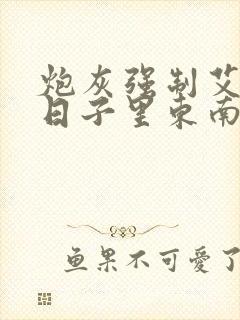 炮灰强制艾
日子里东南
鱼果不可爱了